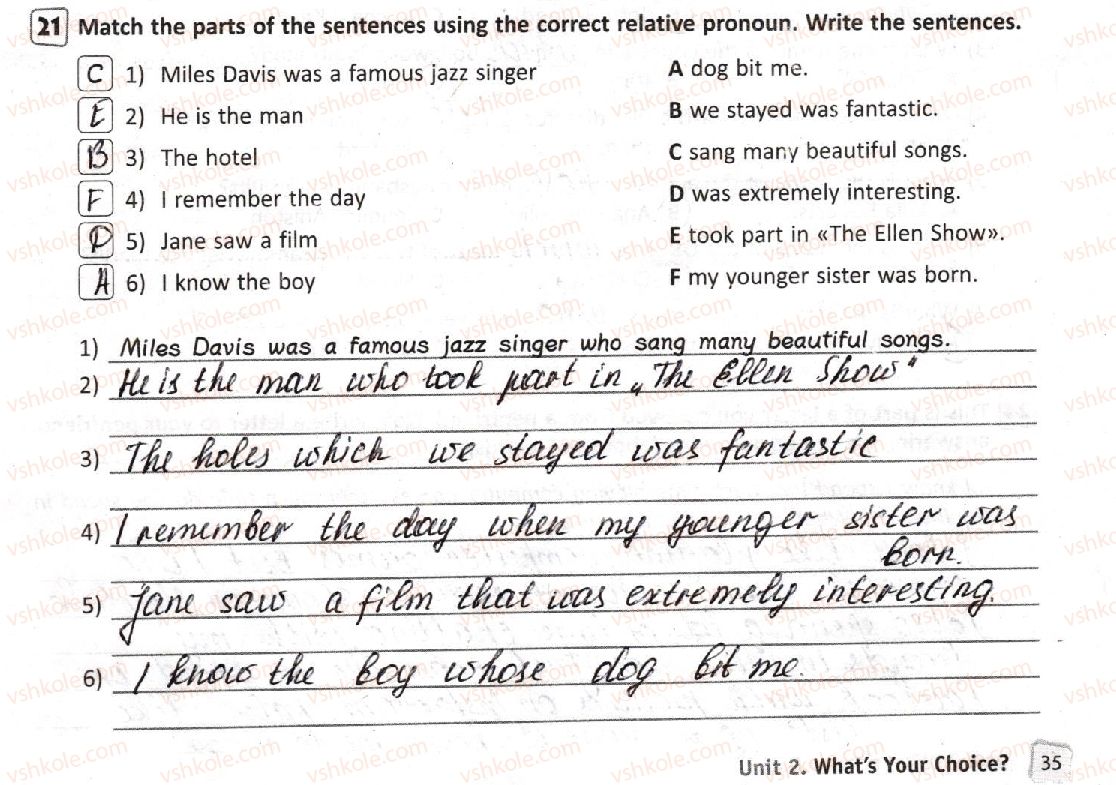 21 Match the parts of the sentences using the correct relative pronoun. Write the sentences.
C 1) Miles Davis was a famous jazz singer
A dog bit me.
E 2) He is the man
B we stayed was fantastic.
B 3) The hotel
C sang many beautiful songs.
F 4) I remember the day
D was extremely interesting.
D 5) Jane saw a film
E took part in «The Ellen Show».
A 6) I know the boy
F my younger sister was born.
1) Miles Davis was a famous jazz singer who sang many beautiful songs.
2) He is the man who took part in „The Ellen Show"
3) The holes which we stayed was fantastic
4) I remember the day when my younger sister was
born.
5) Jane saw a film that was extremely interesting.
6) I know the boy whose dog bit me.
Unit 2. What's Your Choice? 35
vshkole.com